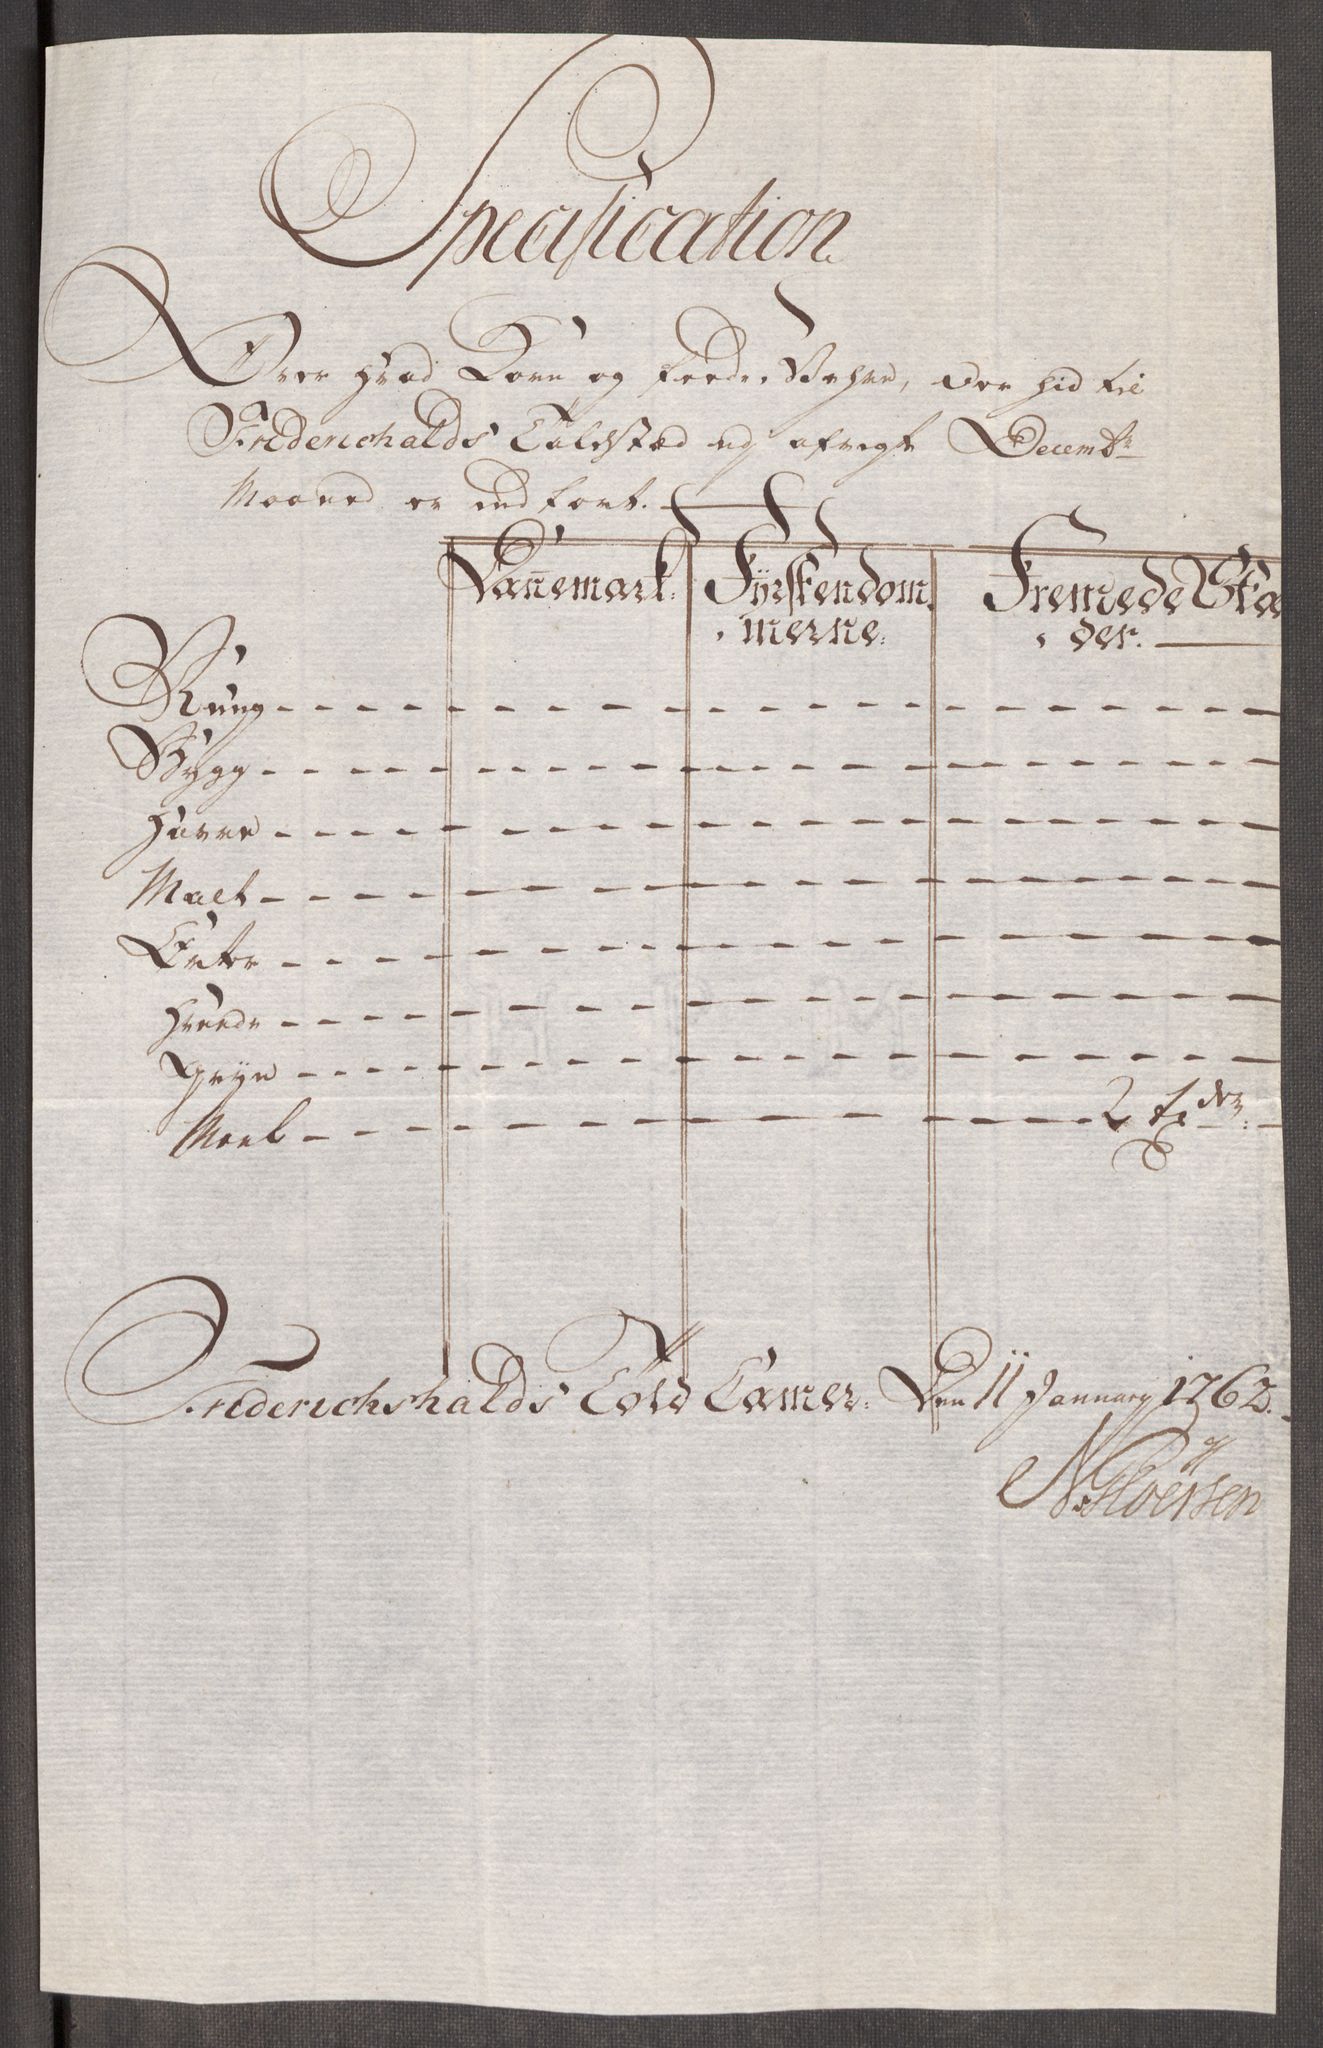 Specification
Over hvad Korn og feede Vahre, der hid til
Friderichalds Toldstæd udj afvigte Decembr
Maaned er indført.
Dañemark: Fÿrstendom Fremede Stæ
merne: der.
Rüug
Bÿgg
Havre
Malt
Erter
Hveede
Grÿn
Meel 2 tr
Friderichshalds Told Camer: Den 11 January 1762.